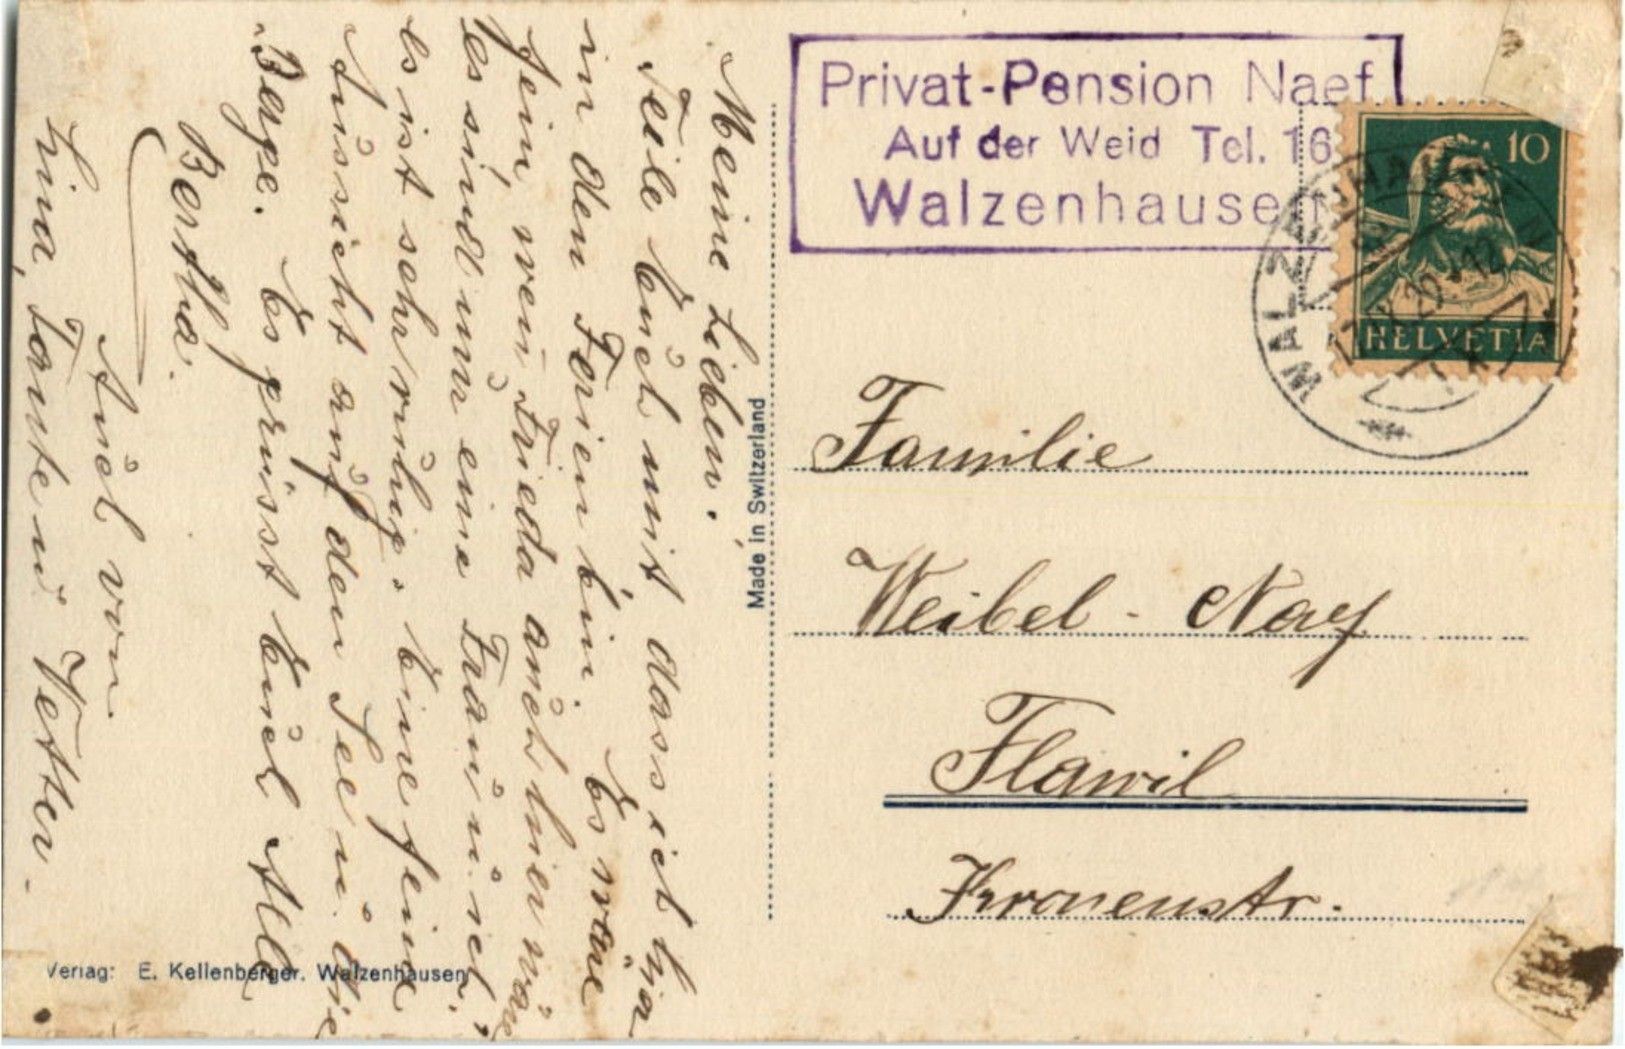 Meine Lieben.
Teile Euch mit dass ich hia
in den Ferien bin. Es wäre
fein, wen Frieda auch hier wär
es sind nur eine Frau u. ich.
Es ist sehr ruhig. Eine feine
Aussicht auf den See u. die
Berge. Es grüsst Euch Alle
Bertha.
Auch von
Lina, Tante u. Vetter.
Made in Switzerland
Verlag: E. Kellenberger, Walzenhausen
Privat-Pension Naef
Auf der Weid Tel. 16
Walzenhausen
10
HELVETIA
WALZENHAUSEN
Familie
Weibel - Naef
Flawil
Kronenstr.